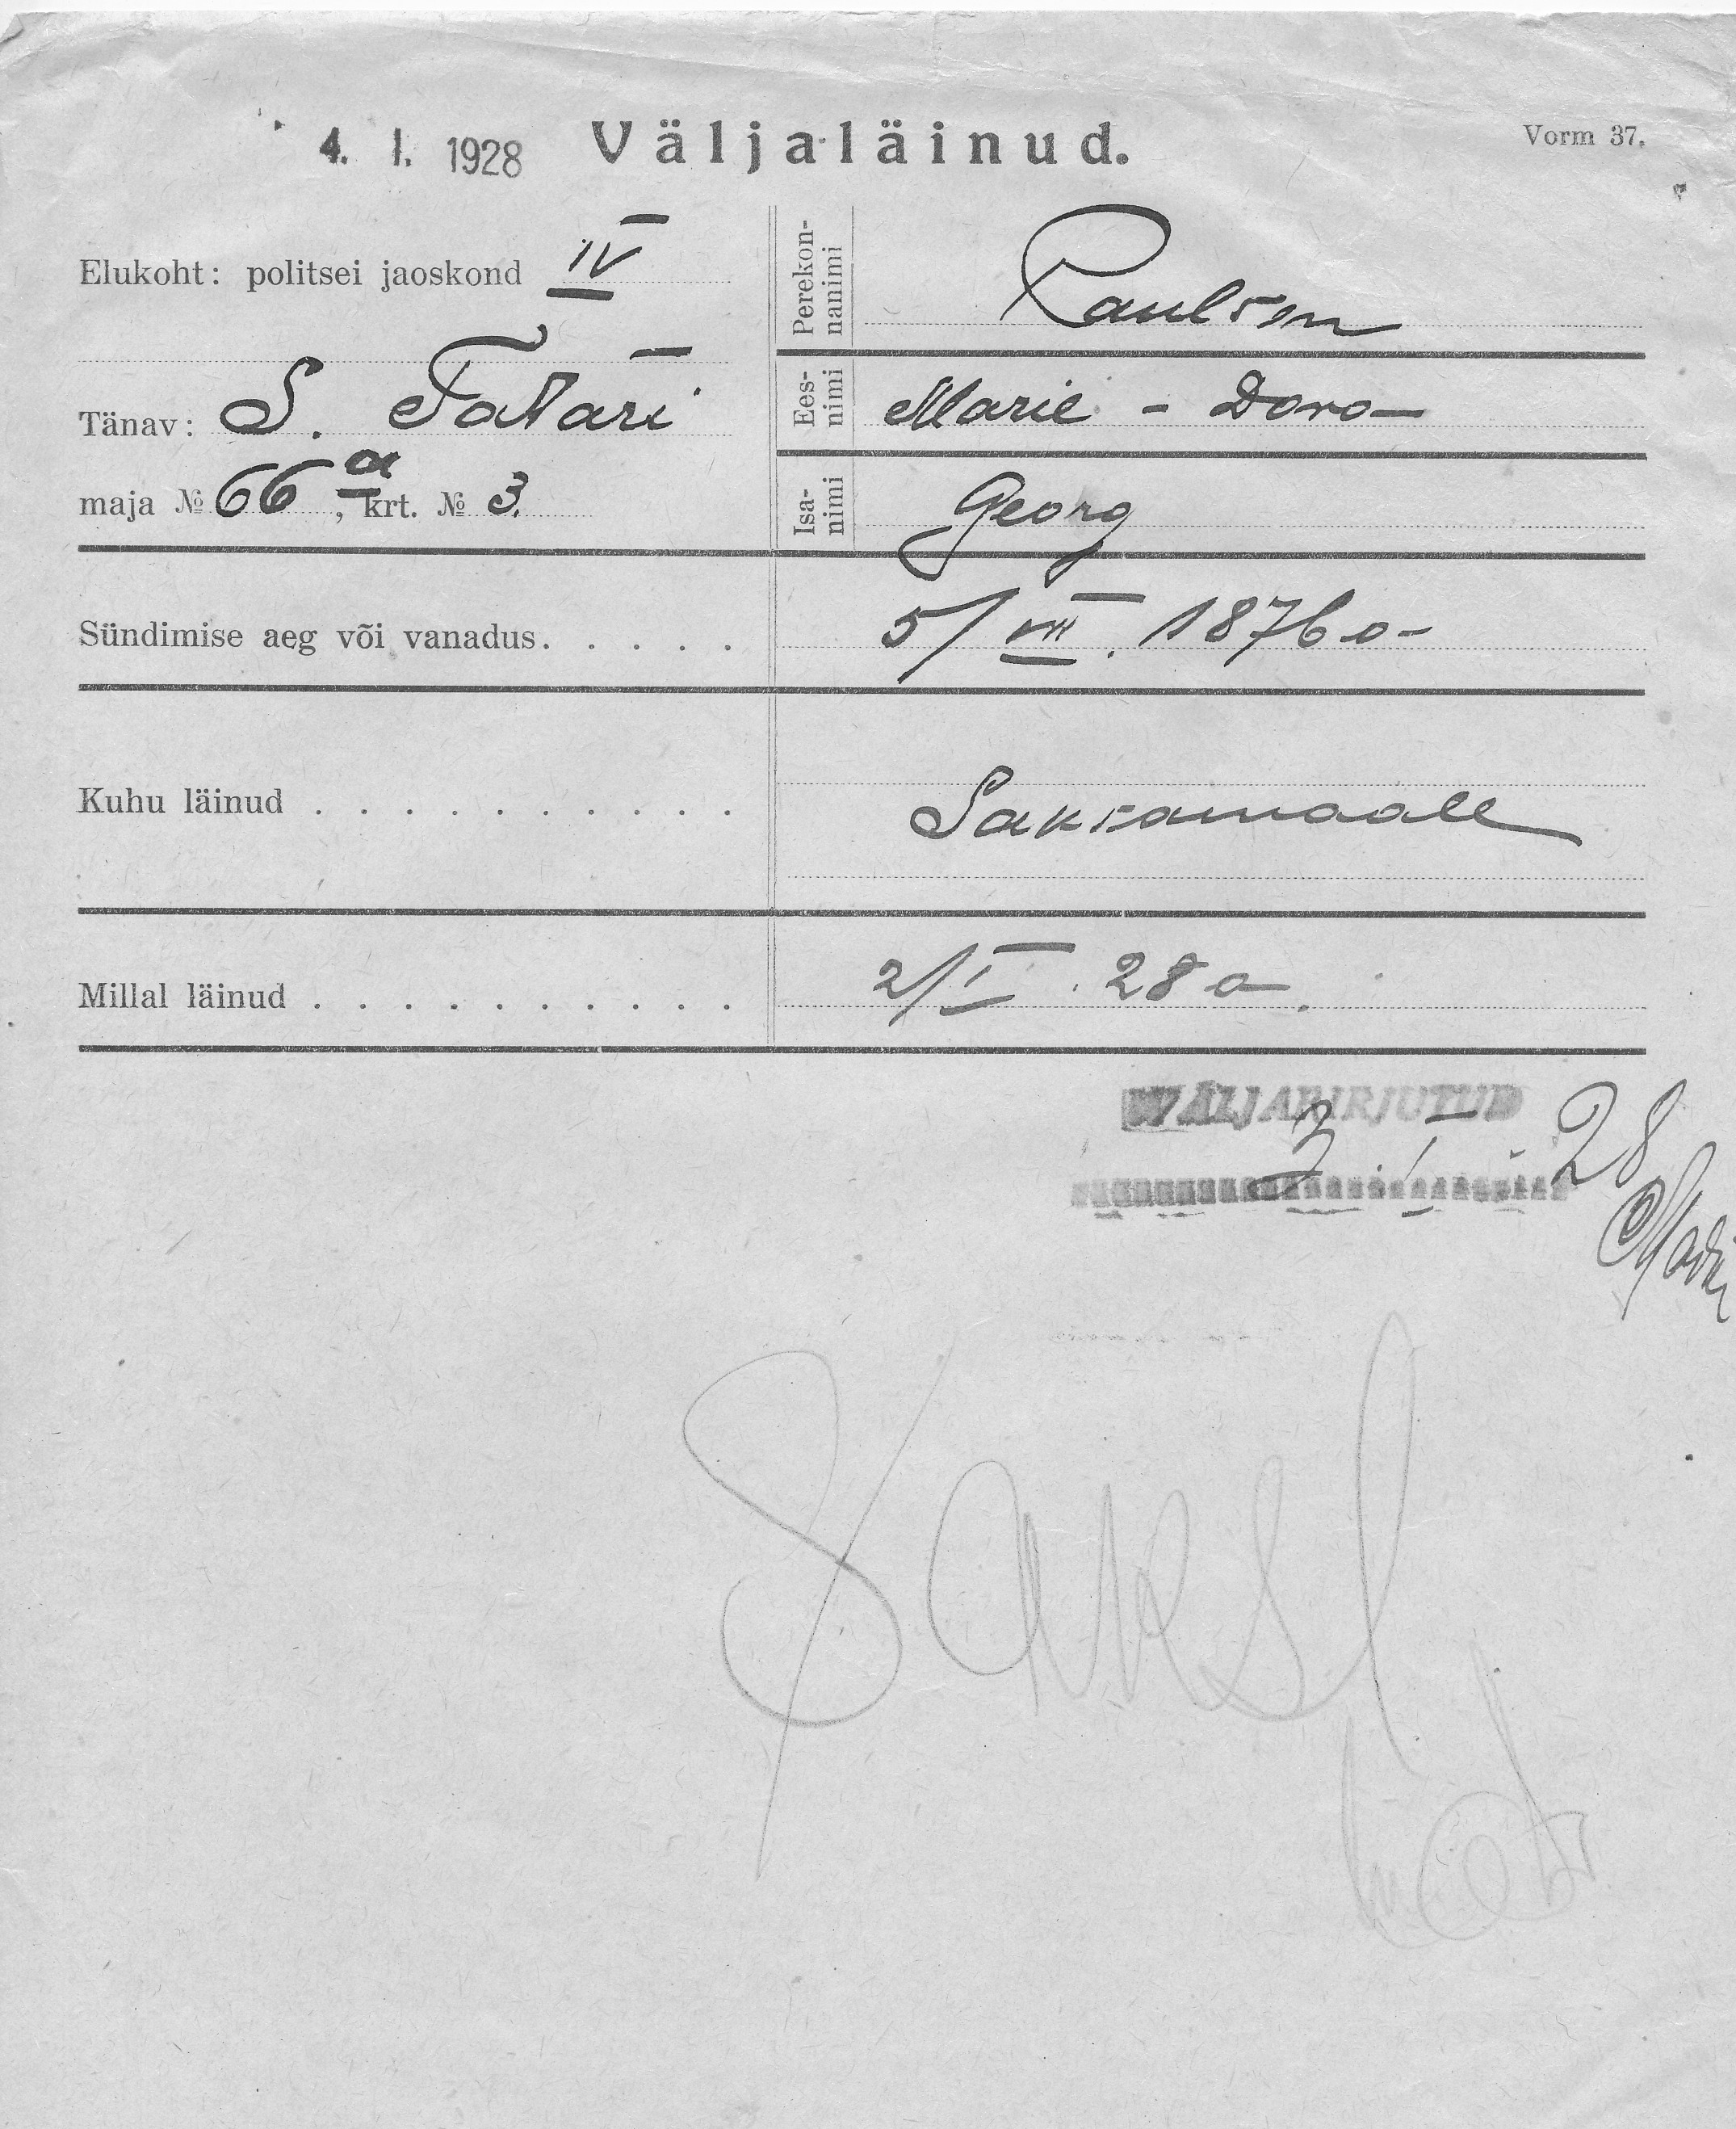 4. I. 1928 Väljaläinud.
Vorm 37.
Elukoht: politsei jaoskond IV
Tänav: S. Tatari
maja № 66 a, krt. № 3.
Perekon-
nanimi
Paulsen
Ees-
nimi
Marie - Doro-
Isa-
nimi
Georg
Sündimise aeg või vanadus. . . . .
5/VII. 1876 a-
Kuhu läinud . . . . . . . . . .
Saksamaale
Millal läinud . . . . . . . . . .
2/I. 28 a.
VÄLJAKIRJUTUD
3 I 28